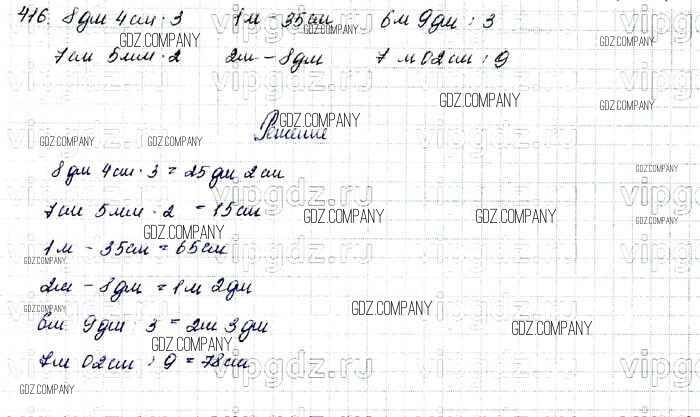 416. 8 дм 4 см · 3 1 м - 35 см 6 м 9 дм : 3
7 см 5 мм · 2 2 м - 8 дм 7 м 02 см : 9
Решение
8 дм 4 см · 3 = 25 дм 2 см
7 см 5 мм · 2 = 15 см
1 м - 35 см = 65 см
2 м - 8 дм = 1 м 2 дм
6 м 9 дм : 3 = 2 м 3 дм
7 м 02 см : 9 = 78 см
GDZ.COMPANY
vipgdz.ru